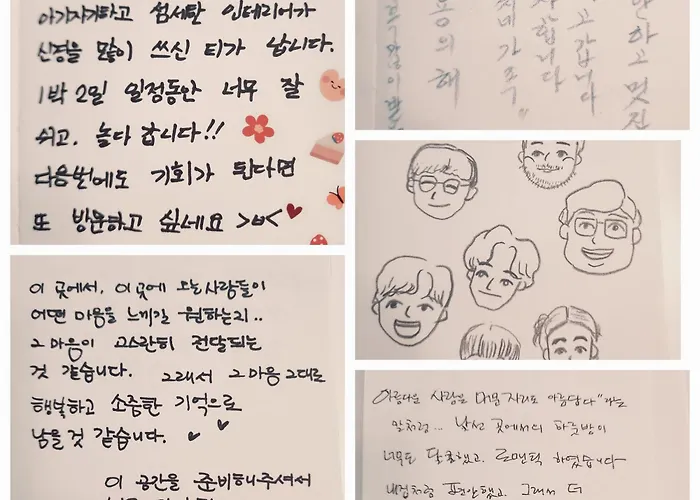 아기자기하고 섬세한 인테리어가
신경을 많이 쓰신 티가 납니다.
1박 2일 일정동안 너무 잘
쉬고, 놀다 갑니다!!
다음번에도 기회가 된다면
또 방문하고 싶네요 >ㅂ<
이 곳에서, 이 곳에 오는 사람들이
어떤 마음을 느끼길 원하는지..
그 마음이 고스란히 전달되는
것 같습니다. 그래서 그 마음 그대로
행복하고 소중한 기억으로
남을 것 같습니다.
이 공간을 준비해주셔서
하고 멋진
고 갑니다
합니다
네 가족
용의 해
아름다운 사람은 머문 자리도 아름답다"라는
말처럼... 낯선 곳에서의 하룻밤이
너무도 달콤했고. 로맨틱 하였습니다
내집처럼 편안했고. 그래서 더